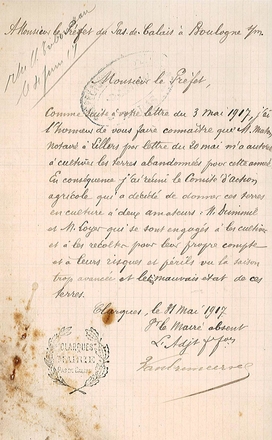 A Monsieur le Préfet du Pas-de-Calais à Boulogne s/m
Monsieur le Préfet,
Comme suite à votre lettre du 3 mai 1917, j'ai
l'honneur de vous faire connaître que M.
notaire à Lillers par lettre du 20 mai m'a autorisé
à cultiver les terres abandonnées pour cette année
En conséquence j'ai réuni le Comité d'action
agricole qui a décidé de donner ces terres
en culture à deux amateurs M.
et M. Loyer qui se sont engagés à les cultiver
et à les récolter pour leur propre compte
et à leurs risques et périls vu la saison
trop avancée et le mauvais état de ces
terres.
Clarques, le 21 Mai 1917
Pr le Maire absent
L'Adjt
CLARQUES
PAS DE CALAIS